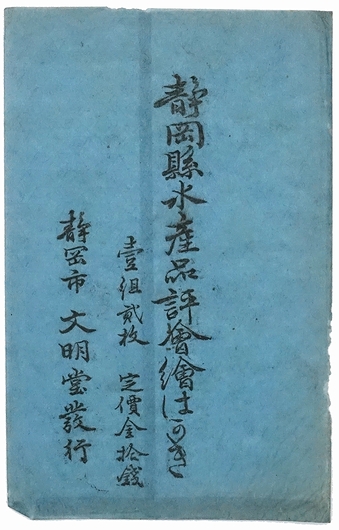 静岡縣水産品評會繪はかき
壹組貳枚 定價金拾錢
静岡市 文明堂發行